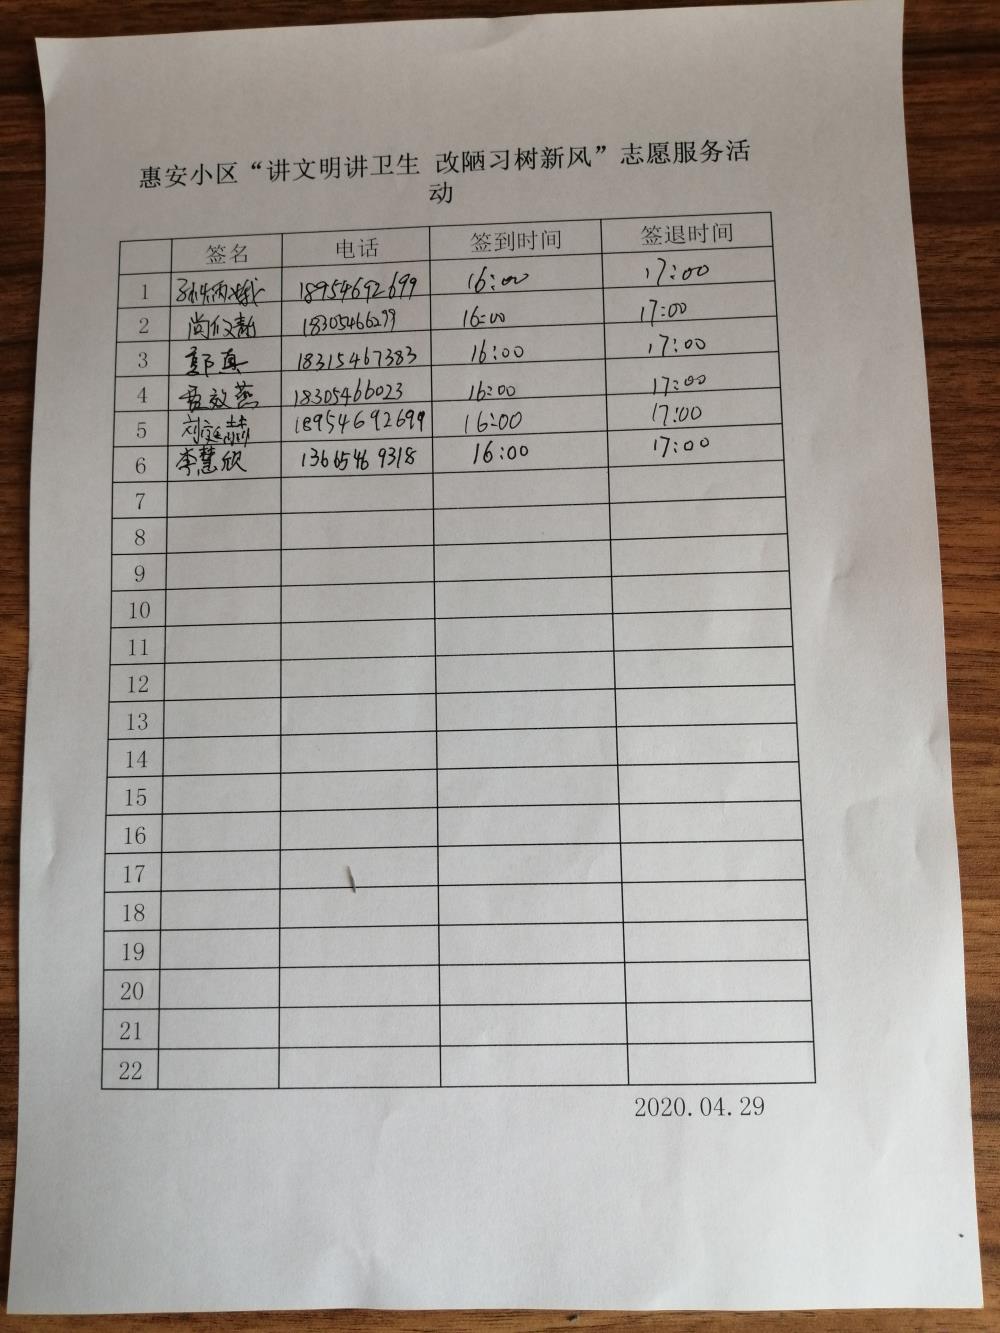 惠安小区“讲文明讲卫生 改陋习树新风”志愿服务活
动
签名 电话 签到时间 签退时间
1 18954692699 16:00 17:00
2 尚仪静 18305466299 16:00 17:00
3 郭真 18315467383 16:00 17:00
4 效燕 18305466023 16:00 17:00
5 刘廷赫 18954692699 16:00 17:00
6 李慧欣 13665469318 16:00 17:00
7
8
9
10
11
12
13
14
15
16
17
18
19
20
21
22
2020.04.29